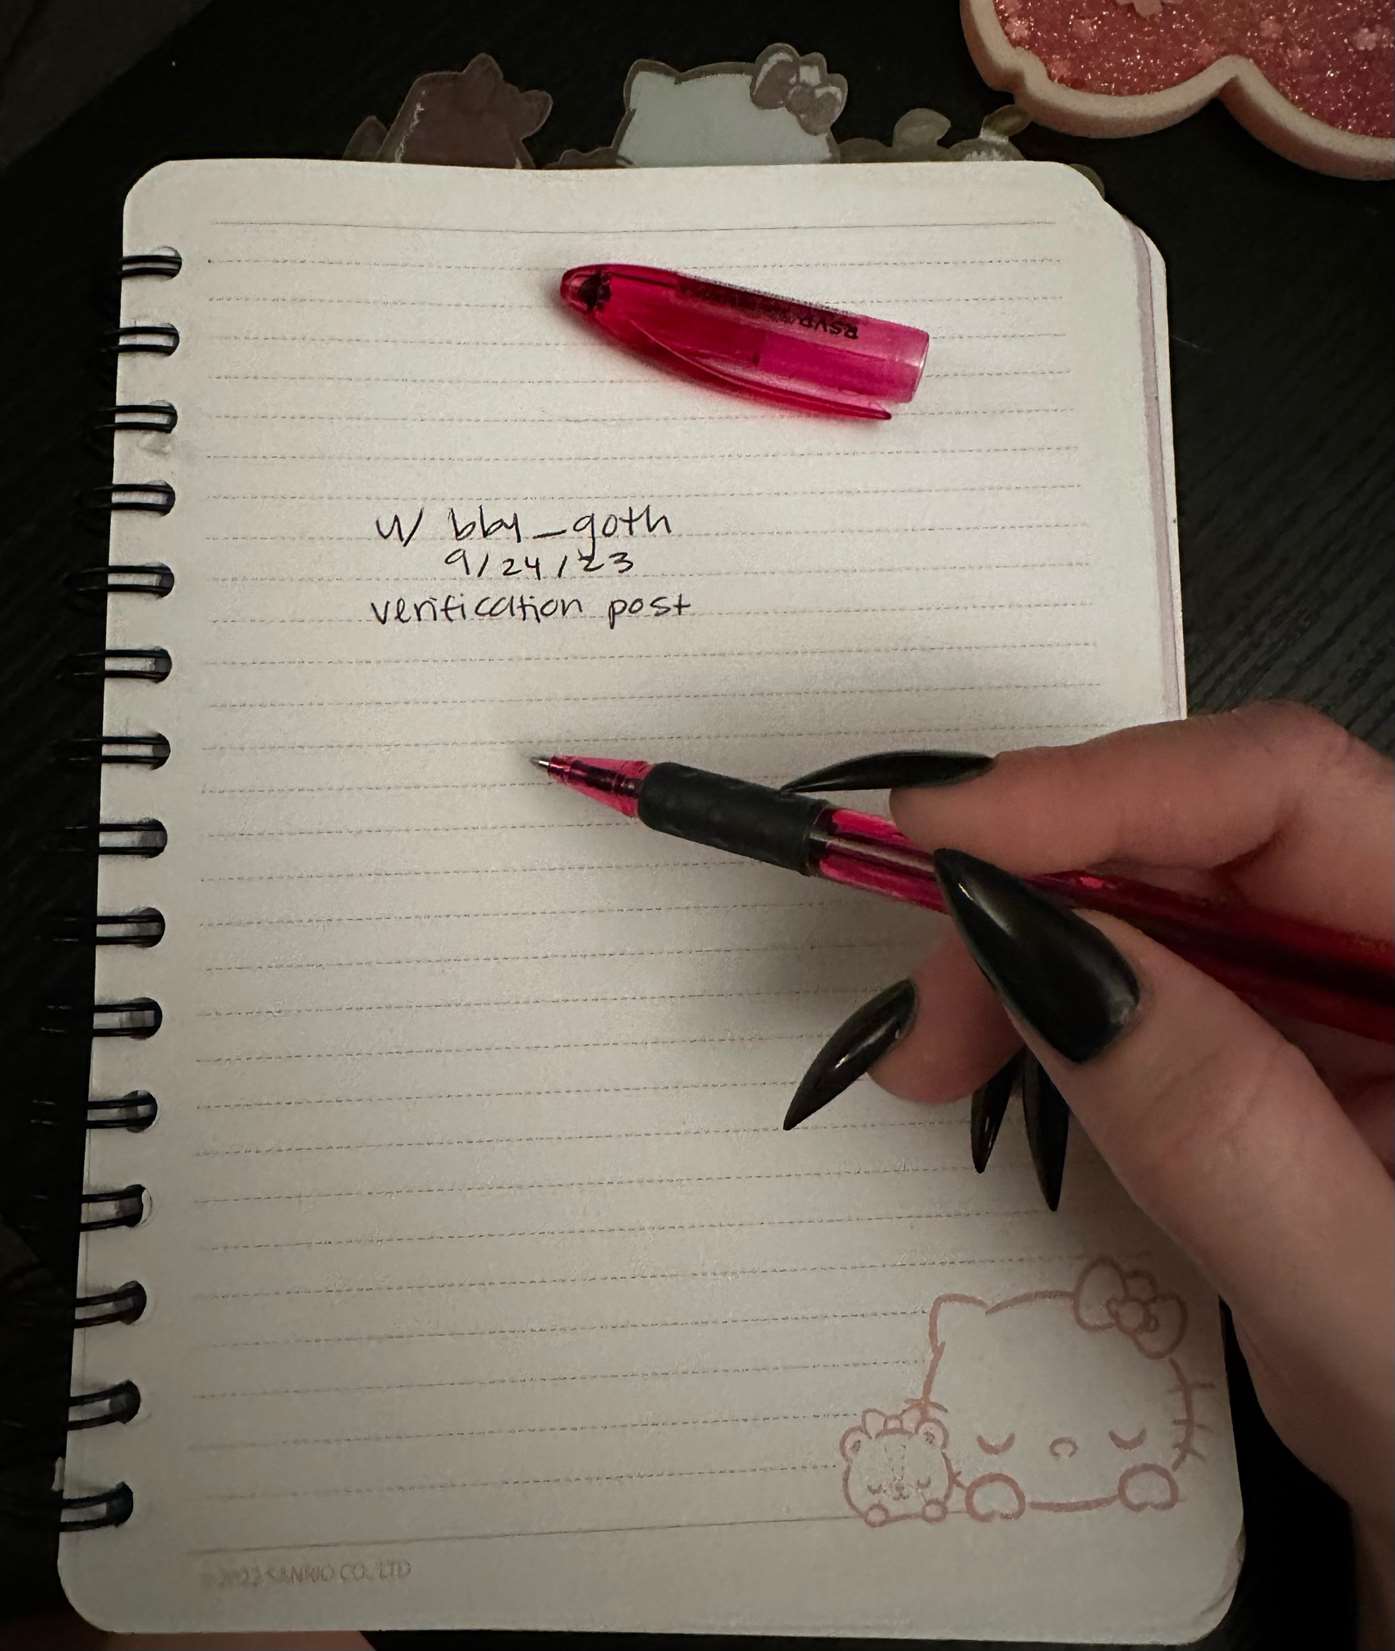 RSVP
u/ bby_goth
9/24/23
verification post
©2022 SANRIO CO., LTD